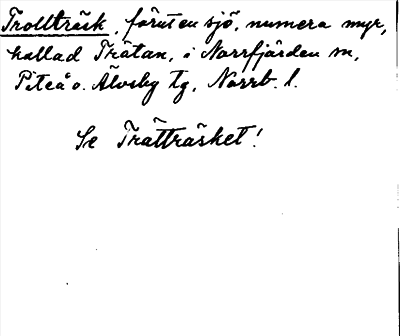 Trollträsk, förut en sjö, numera myr,
kallad Trätan, i Norrfjärden sn,
Piteå o. Älvsby tg, Norrb. l.
Se Trätträsket!